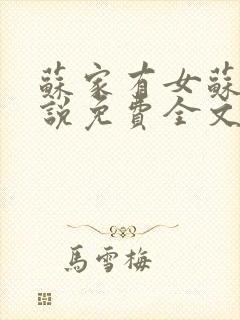 蘇家有女蘇
說免費全文
馬雪梅